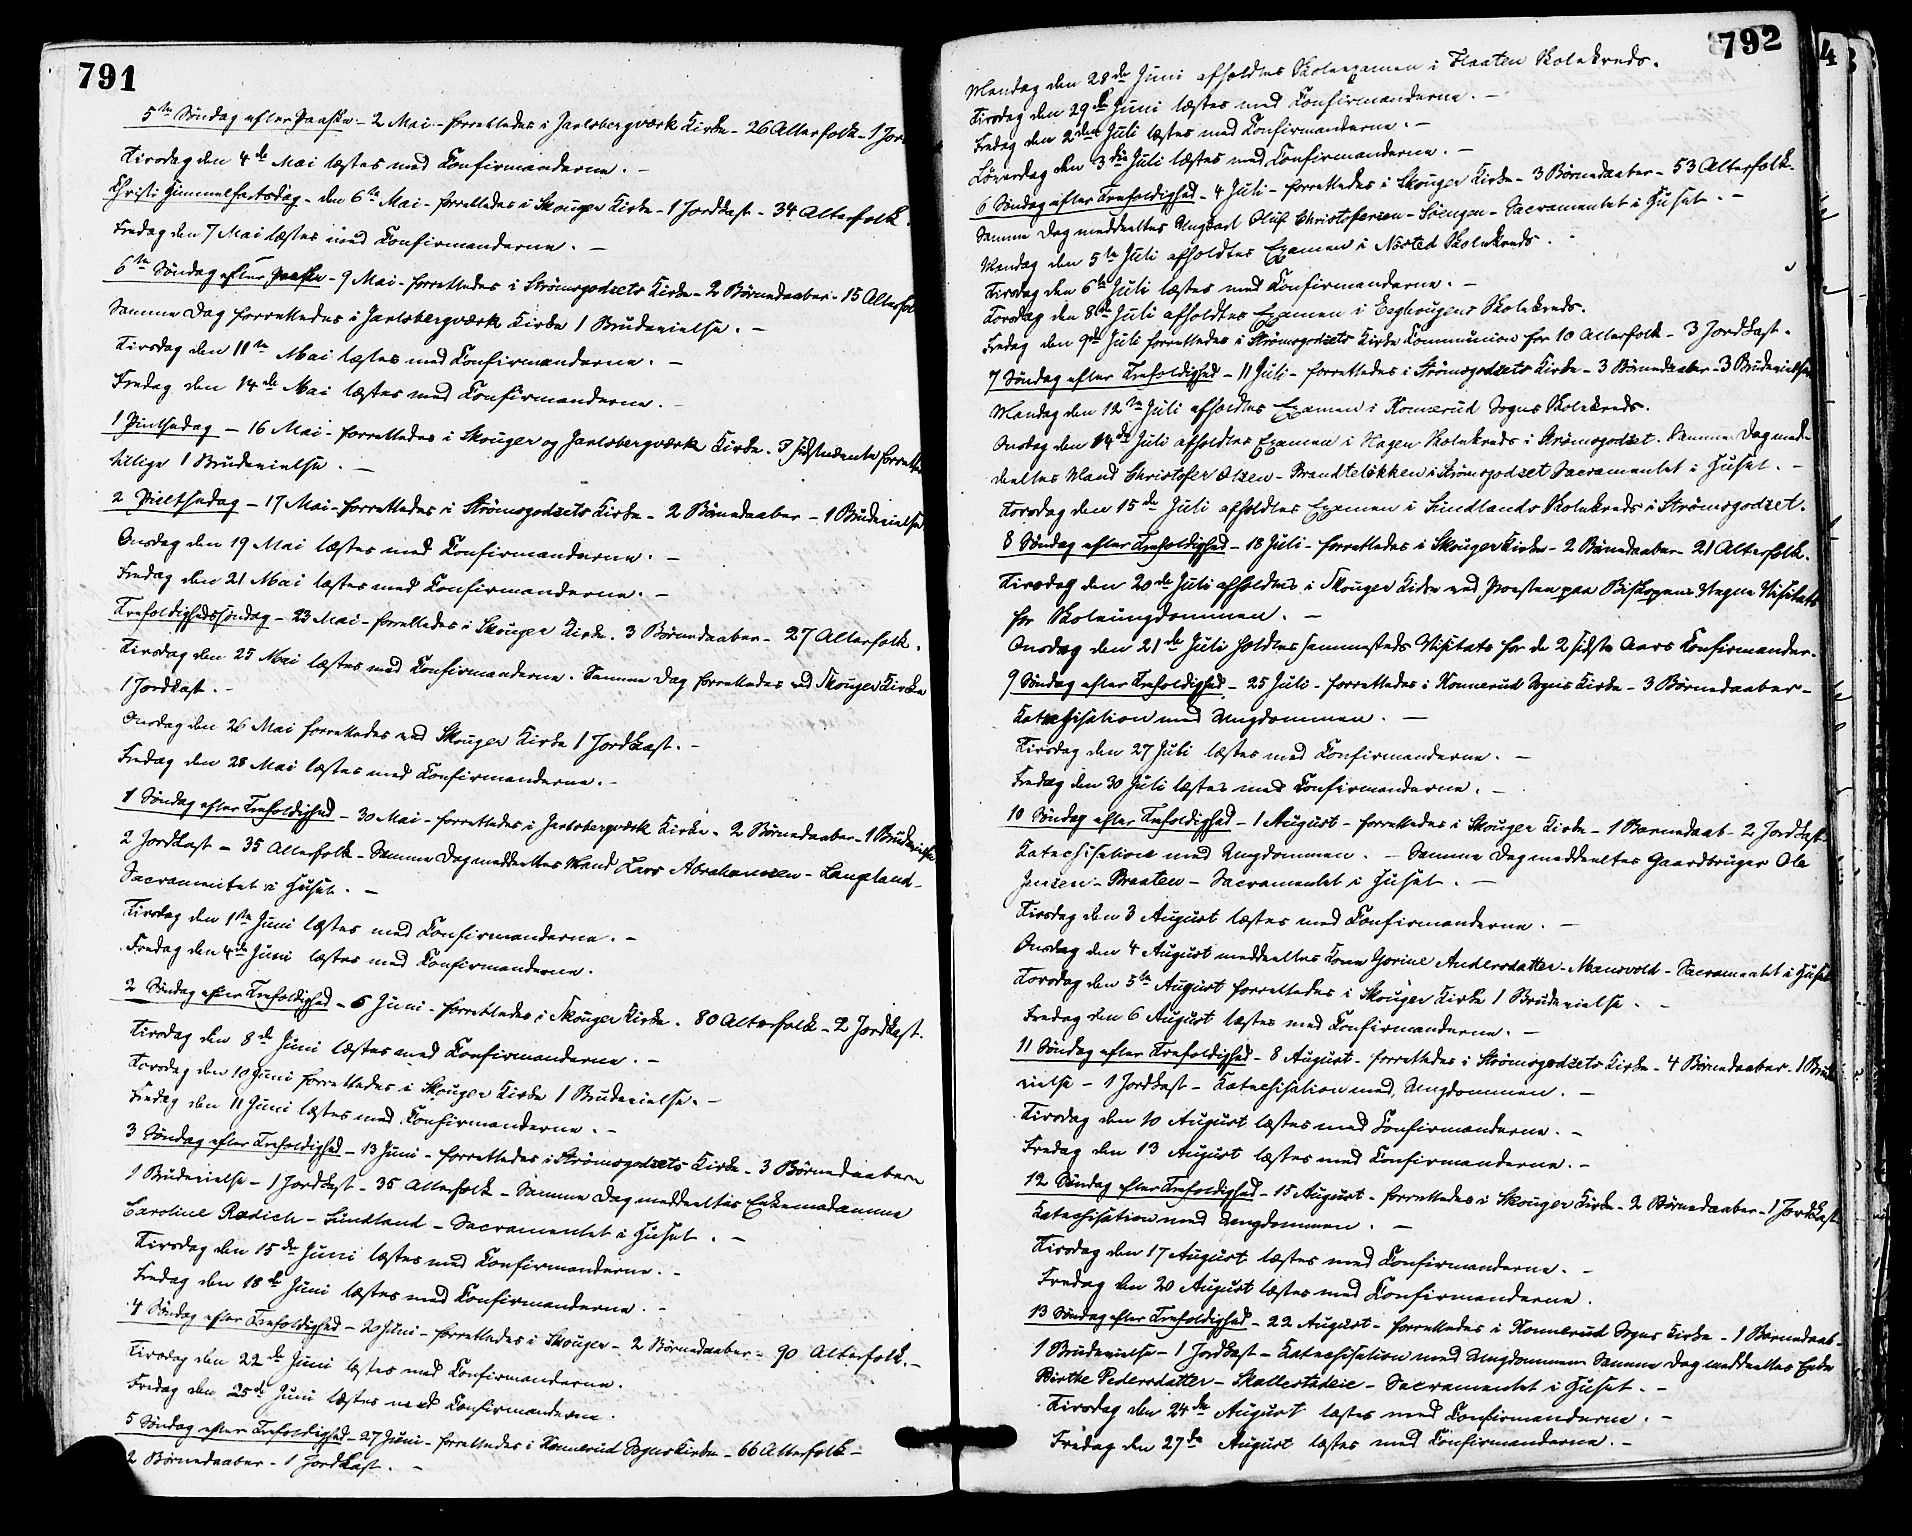 791
5te Søndag efter Paaske - 2 Mai - forrettedes i Jarlsbergværk Kirke - 26 Alterfolk - 1 Jor
Tirsdag den 4de Mai læstes med Confirmanderne. -
Christi Himmelfartsdag - den 6te Mai - forrettedes i Skouger Kirke - 1 Jordkast - 34 Alterfolk.
Fredag den 7 Mai læstes med Confirmanderne. -
6te Søndag efter Paaske - 9 Mai - forrettedes i Strømsgodsets Kirke - 2 Børnedaaber - 15 Alterfol
Samme Dag forrettedes i Jarlsbergværk Kirke 1 Brudevielse. -
Tirsdag den 11te Mai læstes med Confirmanderne. -
Fredag den 14de Mai læstes med Confirmanderne. -
1 Pintsedag - 16 Mai - forrettedes i Skouger og Jarlsbergværk Kirke.
tillige 1 Brudevielse. -
2 Pintsedag - 17 Mai - forrettedes i Strømsgodsets Kirke - 2 Børnedaaber - 1 Brudevielse
Onsdag den 19 Mai læstes med Confirmanderne. -
Fredag den 21 Mai læstes med Confirmanderne. -
Trefoldighedssøndag - 23 Mai - forrettedes i Skouger Kirke. 3 Børnedaaber - 27 Alterfolk.
Tirsdag den 25 Mai læstes med Confirmanderne. Samme Dag forrettedes ved Skouger Kirke
1 Jordkast. -
Onsdag den 26 Mai forrettedes ved Skouger Kirke 1 Jordkast. -
Fredag den 28 Mai læstes med Confirmanderne. -
1 Søndag efter Trefoldighed - 30 Mai - forrettedes i Jarlsbergværk Kirke - 2 Børnedaaber - 1 Brudevielse
2 Jordkast - 35 Alterfolk - Samme Dag meddeeltes Mand Lars Abrahamsen - Langland -
Sacramentet i Huset. -
Tirsdag den 1ste Juni læstes med Confirmanderne. -
Fredag den 4de Juni læstes med Confirmanderne.
2 Søndag efter Trefoldighed - 6 Juni - forrettedes i Skouger Kirke. 80 Alterfolk - 2 Jordkast.
Tirsdag den 8de Juni læstes med Confirmanderne. -
Torsdag den 10 Juni forrettedes i Skouger Kirke 1 Brudevielse. -
Fredag den 11 Juni læstes med Confirmanderne. -
3 Søndag efter Trefoldighed - 13 Juni - forrettedes i Strømsgodsets Kirke - 3 Børnedaaber
1 Brudevielse - 1 Jordkast - 35 Alterfolk - Samme Dag meddeeltes Enkemadamme
Caroline Radich - Sundland - Sacramentet i Huset. -
Tirsdag den 15de Juni læstes med Confirmanderne. -
Fredag den 18de Juni læstes med Confirmanderne. -
4 Søndag efter Trefoldighed - 20 Juni - forrettedes i Skouger - 2 Børnedaaber - 90 Alterfolk. -
Tirsdag den 22de Juni læstes med Confirmanderne.
Fredag den 25de Juni læstes med Confirmanderne.
5 Søndag efter Trefoldighed - 27 Juni - forrettedes i Konnerud Sogns Kirke - 66 Alterfolk -
2 Børnedaaber - 1 Jordkast. -
792
Mandag den 28de Juni afholdtes Skoleexamen i Flaaten Skolekreds.
Tirsdag den 29de Juni læstes med Confirmanderne. -
Fredag den 2den Juli læstes med Confirmanderne. -
Løverdag den 3die Juli læstes med Confirmanderne. -
6 Søndag efter Trefoldighed - 4 Juli - forrettedes i Skouger Kirke - 3 Børnedaaber - 53 Alterfolk.
Samme Dag meddeeltes Ungkarl Oluf Christofersen - Søengen - Sacramentet i Huset. -
Mandag den 5te Juli afholdtes Examen i Nøsted Skolekreds.
Tirsdag den 6te Juli læstes med Confirmanderne. -
Torsdag den 8de Juli afholdtes Examen i Eeghougens Skolekreds.
Fredag den 9de Juli forrettedes i Strømsgodsets Kirke Communion for 10 Alterfolk - 3 Jordkast.
7 Søndag efter Trefoldighed - 11 Juli - forrettedes i Strømsgodsets Kirke - 3 Børnedaaber - 3 Brudevielser
Mandag den 12te Juli afholdtes Examen i Konnerud Sogns Skolekreds.
Onsdag den 14de Juli afholdtes Examen i Hagen Skolekreds i Strømsgodset. Samme Dag med-
deeltes Mand Christofer Olsen - Brandteløkken i Strømsgodset Sacramentet i Huset. -
Torsdag den 15de Juli afholdtes Examen i Sundlands Skolekreds i Strømsgodset.
8 Søndag efter Trefoldighed - 18 Juli - forrettedes i Skouger Kirke - 2 Børnedaaber - 21 Alterfolk.
Tirsdag den 20de Juli afholdtes i Skouger Kirke ved Provsten paa Biskopens Vegne Visitats
for Skoleungdommen. -
Onsdag den 21de Juli holdtes sammesteds Visitats for de 2 sidste Aars Confirmander.
9 Søndag efter Trefoldighed - 25 Juli - forrettedes i Konnerud Sogns Kirke - 3 Børnedaaber -
Katechisation med Ungdommen. -
Tirsdag den 27 Juli læstes med Confirmanderne. -
Fredag den 30 Juli læstes med Confirmanderne. -
10 Søndag efter Trefoldighed - 1 August - forrettedes i Skouger Kirke - 1 Barnedaab - 2 Jordkast -
Katechisation med Ungdommen. - Samme Dag meddeeltes Gaardbruger Ole
Jensen - Braaten - Sacramentet i Huset. -
Tirsdag den 3 August læstes med Confirmanderne. -
Onsdag den 4 August meddeeltes Kone Gorine Andersdatter - Mansvold - Sacramentet i Huset
Torsdag den 5te August forrettedes i Skouger Kirke 1 Brudevielse. -
Fredag den 6 August læstes med Confirmanderne. -
11 Søndag efter Trefoldighed - 8 August - forrettedes i Strømsgodsets Kirke - 4 Børnedaaber - 1 Brude
vielse - 1 Jordkast - Katechisation med Ungdommen. -
Tirsdag den 10 August læstes med Confirmanderne. -
Fredag den 13 August læstes med Confirmanderne. -
12 Søndag efter Trefoldighed - 15 August - forrettedes i Skouger Kirke - 2 Børnedaaber - 1 Jordkast
Katechisation med Ungdommen. -
Tirsdag den 17 August læstes med Confirmanderne. -
Fredag den 20 August læstes med Confirmanderne.
13 Søndag efter Trefoldighed - 22 August - forrettedes i Konnerud Sogns Kirke - 1 Barnedaab -
1 Brudevielse - 1 Jordkast - Katechisation med Ungdommen Samme Dag meddeeltes Enke
Birthe Pedersdatter - Skallestadeie - Sacramentet i Huset. -
Tirsdag den 24de August læstes med Confirmanderne. -
Fredag den 27de August læstes med Confirmanderne. -
4